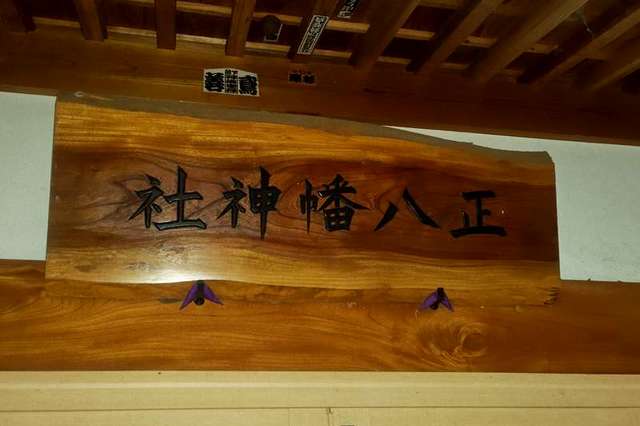 正八幡神社